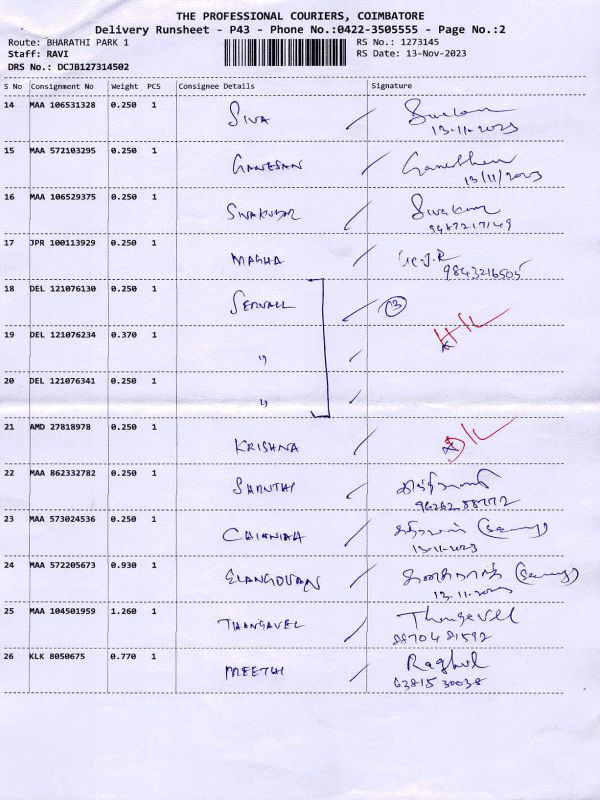 THE PROFESSIONAL COURIERS, COIMBATORE
Delivery Runsheet - P43 - Phone No.:0422-3505555 - Page No.:2
Route: BHARATHI PARK 1
RS No.: 1273145
Staff: RAVI
RS Date: 13-Nov-2023
DRS No.: DCJB127314502
S No Consignment No Weight PCS Consignee Details Signature
14 MAA 106531328 0.250 1 SIVA
13-11-2023
15 MAA 572103295 0.250 1 GANESAN
13/11/2023
16 MAA 106529375 0.250 1 SIVAKUMAR Sivakumar
9487217149
17 JPR 100113929 0.250 1
9843216505
18 DEL 121076130 0.250 1 3
19 DEL 121076234 0.370 1 "
20 DEL 121076341 0.250 1 "
21 AMD 27818978 0.250 1 KRISHNA
22 MAA 862332782 0.250 1
23 MAA 573024536 0.250 1
13-11-2023
24 MAA 572205673 0.930 1 ELANGOVAN
13.11.2023
25 MAA 104501959 1.260 1 THANGAVEL Thangavel
88704 81592
26 KLK 8050675 0.770 1 PREETHI Raghul
63815 30038